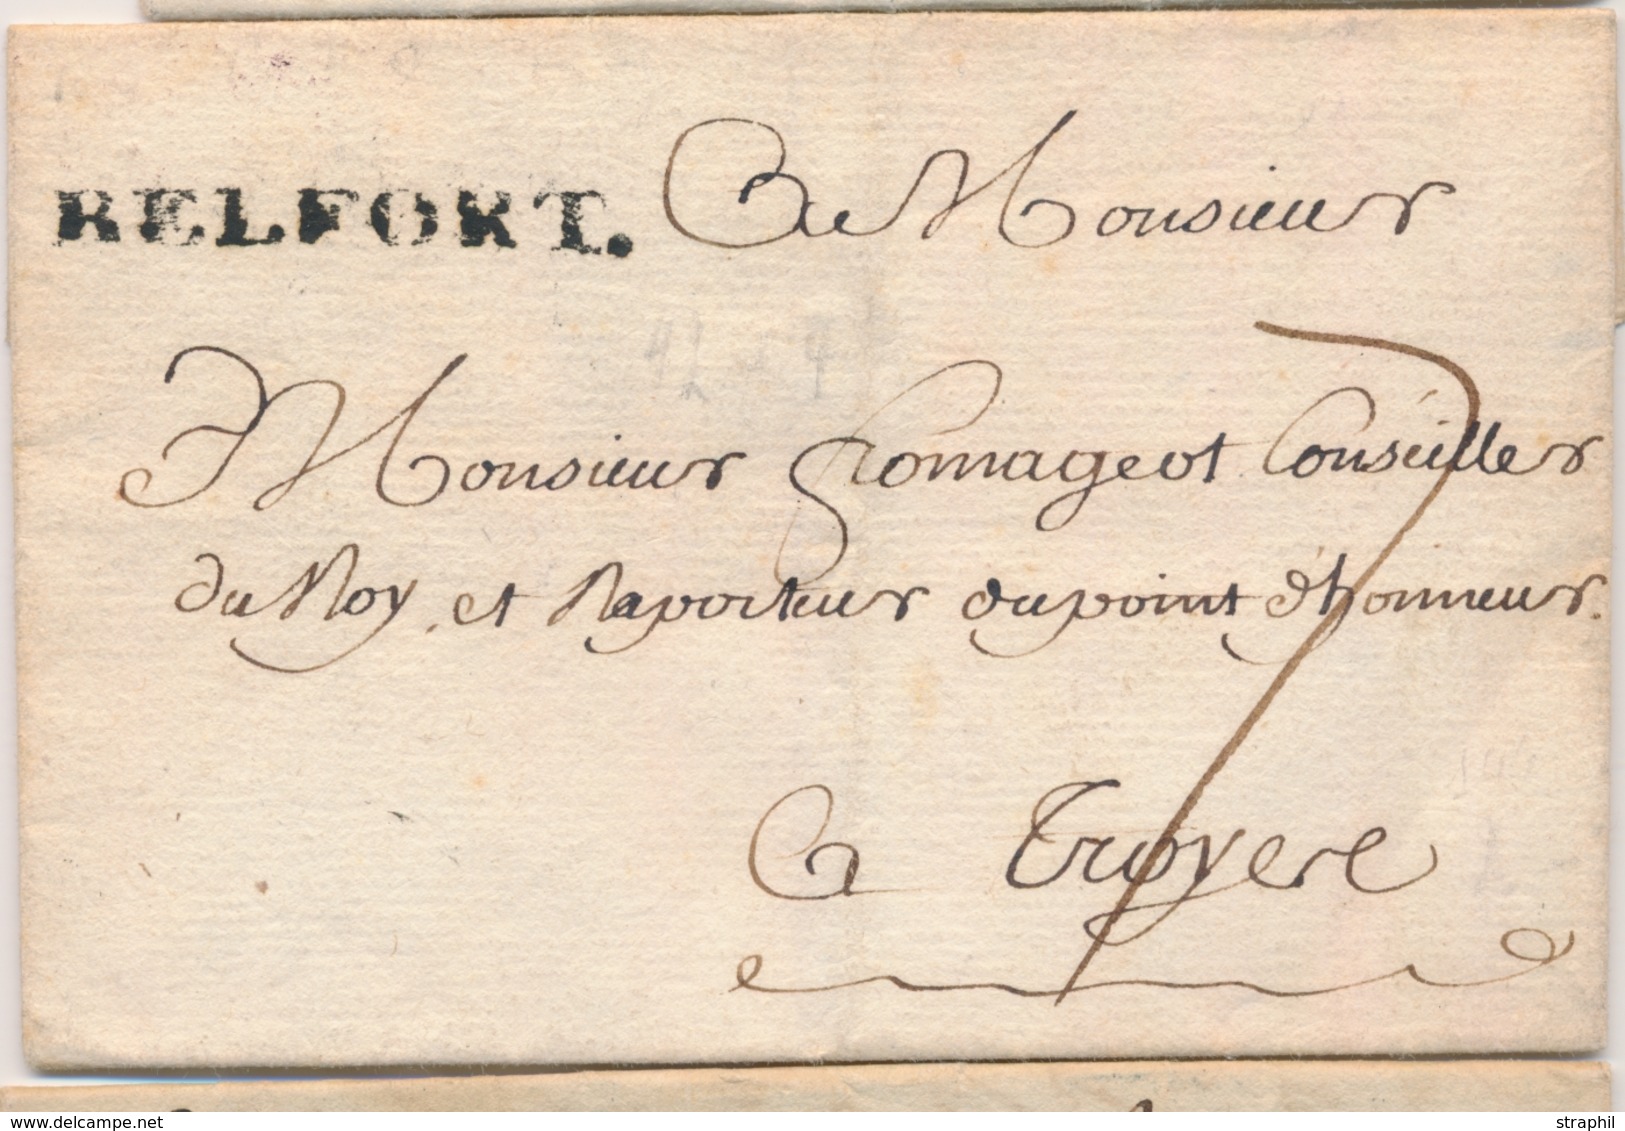 BELFORT. A Monsieur
Monsieur fromageot Conseiller
du Roy, et Raporteur du point d'honneur.
a Troyese
7
delcampe.net
straphil